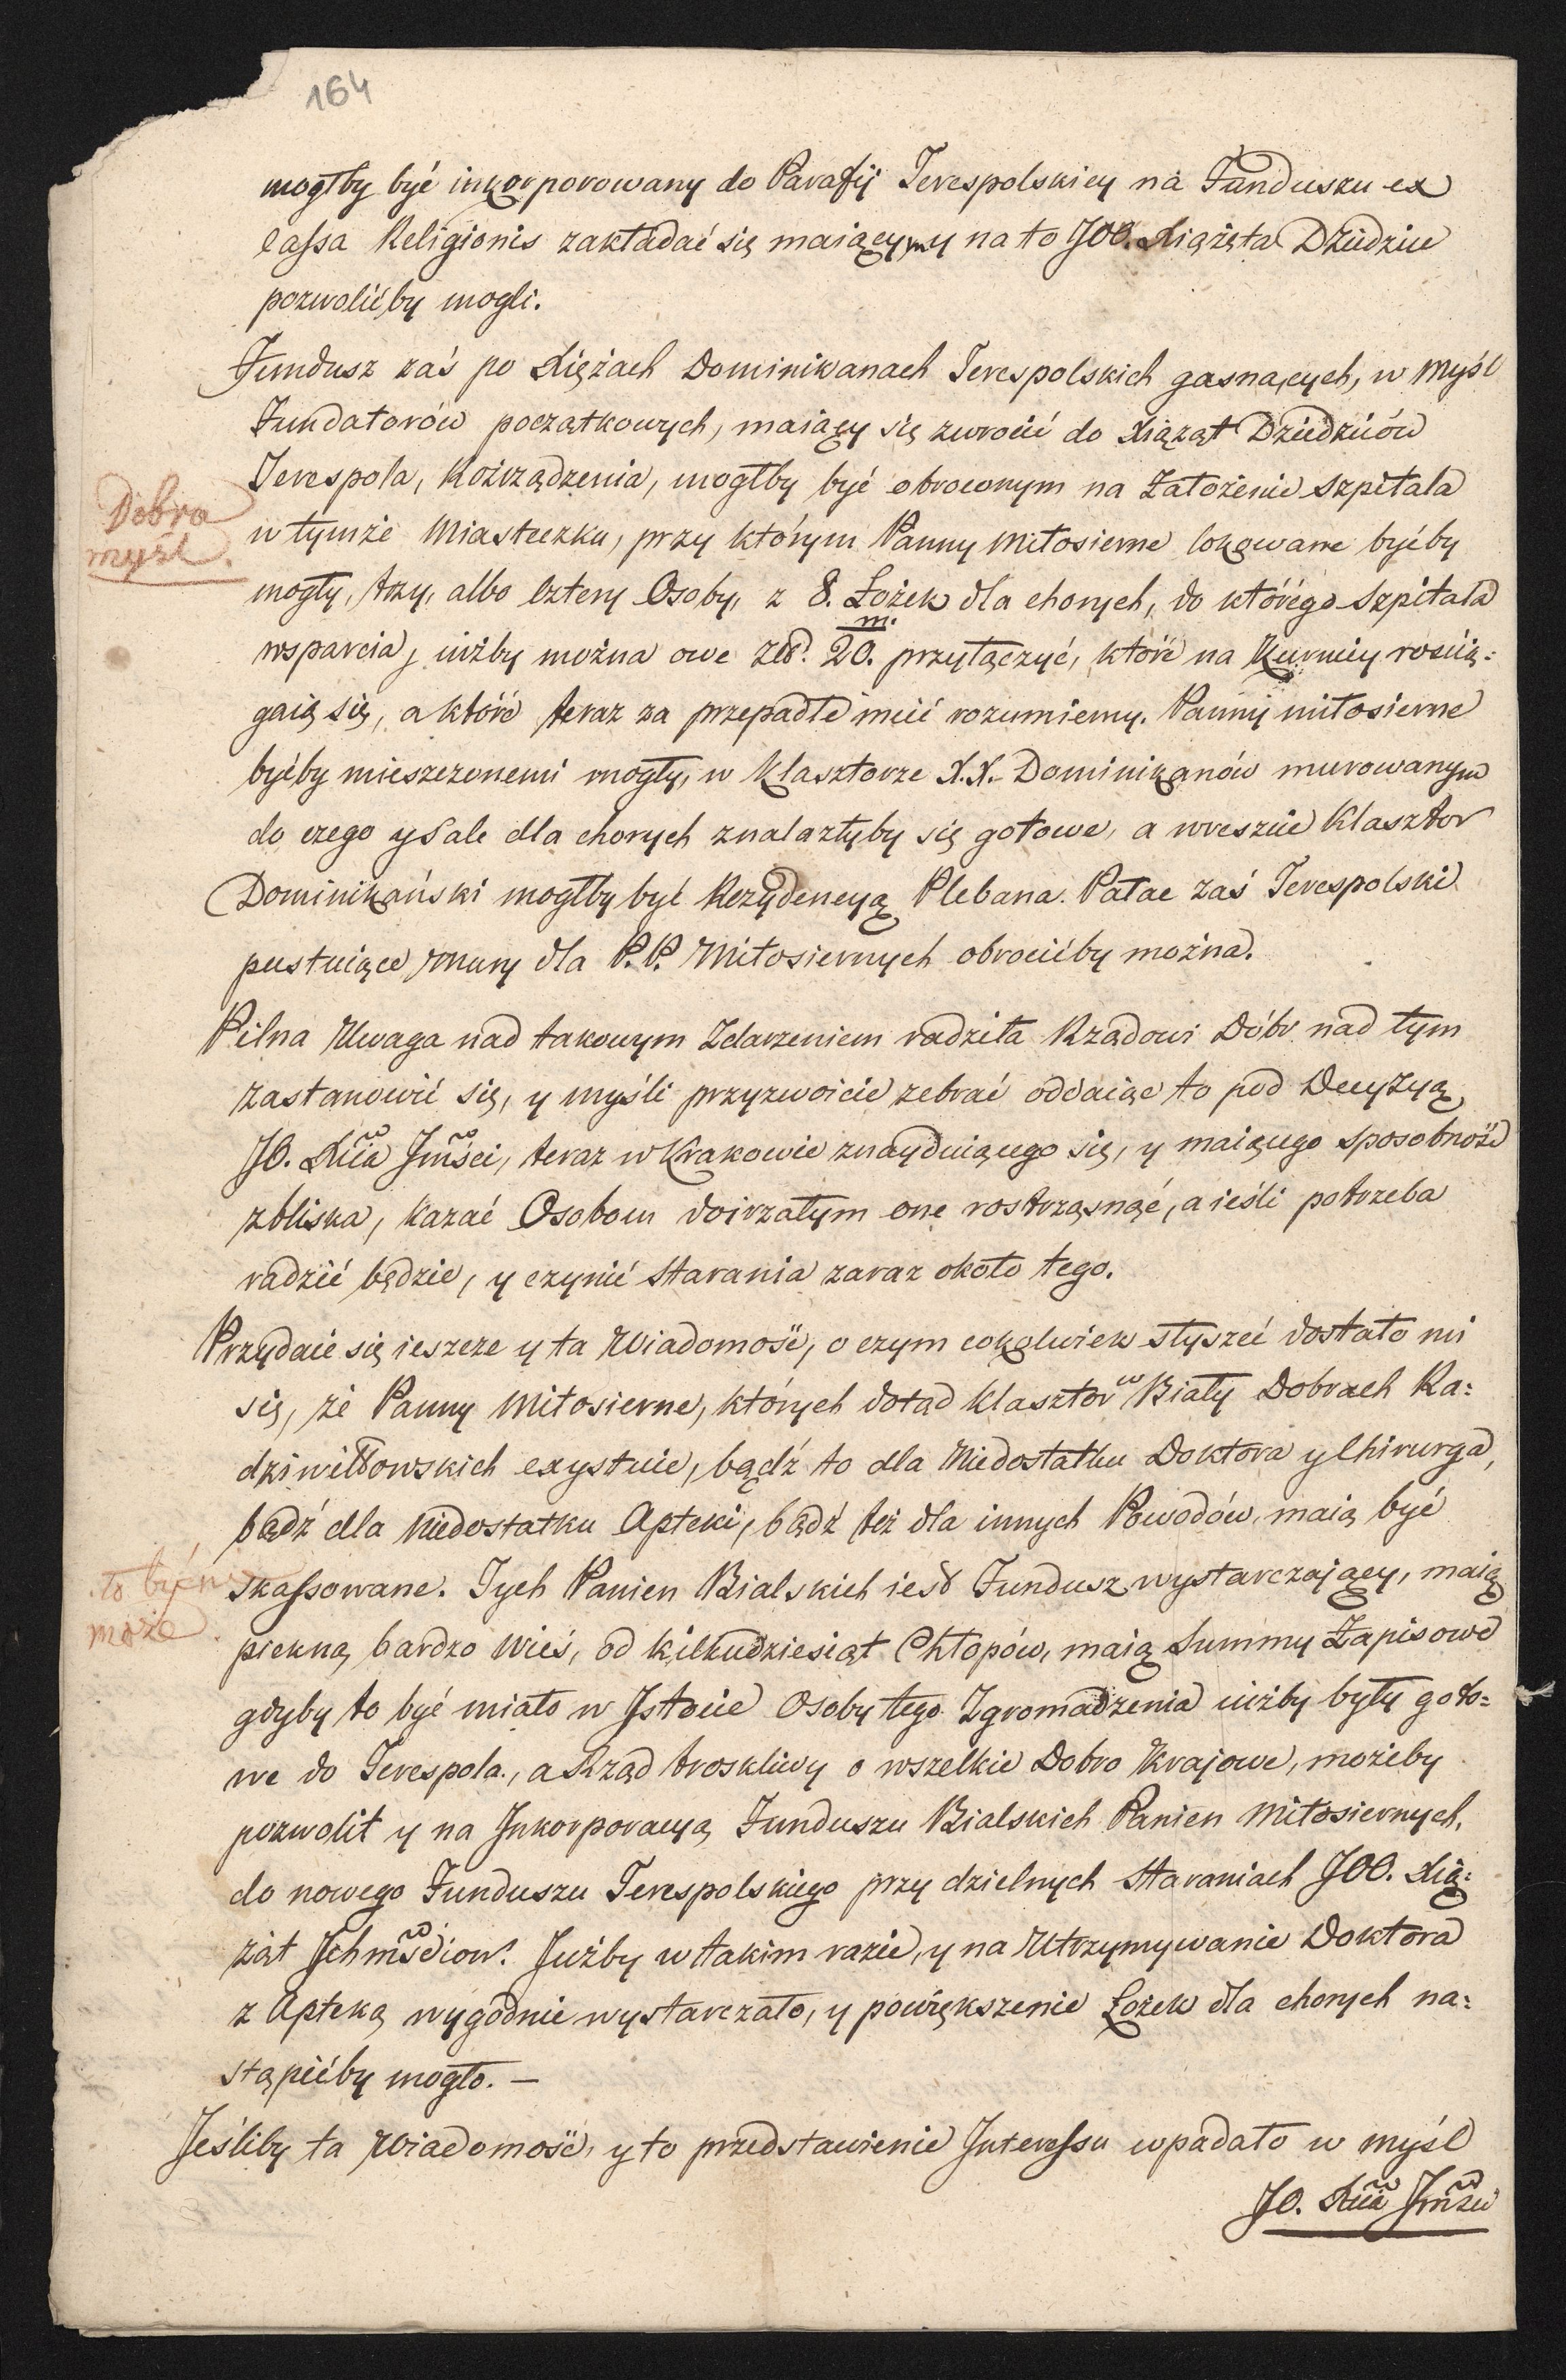 164
mogłby być inkorporowany do Parafij Terespolskiey na Funduszu ex
Cassa Religionis zakładać się maiącym, y na to JOO. Xiążęta Dziedzice
pozwolićby mogli.
Fundusz zaś po Xiężach Dominikanach Terespolskich gasnących, w myśl
Fundatorów początkowych, maiący się zwrocić do Xiążąt Dziedziców
Terespola, Rozrządzenia, mogłby być obroconym na Założenie Szpitala
Dobra
myśl.
w tymże Miasteczku, przy którym Panny Miłosierne lokowane byćby
mogły, trzy, albo cztery Osoby, z 8. Łożek dla chorych, do którego Szpitala
wsparcia, iużby można owe Złł. 20.m. przyłączyć, które na Kurniey rością=
gaią się, a które teraz za przepadłe mieć rozumiemy. Panny miłosierne
byćby mieszczonemi mogły, w Klasztorze X.X. Dominikanów murowanym
do czego y Sale dla chorych znalazłyby się gotowe, a wreszcie Klasztor
Dominikański mogłby być Rezydencyą Plebana. Pałac zaś Terespolski
pustuiące mury dla P.P. Miłosiernych obrocićby można.
Pilna Uwaga nad takowym Zdarzeniem radziła Rządowi Dóbr nad tym
zastanowić się, y myśli przyzwoicie zebrać oddaiąc to pod Decyzyą
JO. Xcia Jmści, teraz w Krakowie znayduiącego się, y maiącego sposobność
zbliska, kazać Osobom doirzałym one rostrząsnąć, a ieśli potrzeba
radzić będzie, y czynić starania zaraz około tego.
Przydaie się ieszcze y ta Wiadomość, o czym cokolwiek słyszeć dostało mi
się, że Panny Miłosierne, których dotąd Klasztor w Biały Dobrach Ra=
dziwiłłowskich exystuie, bądź to dla Niedostatku Doktora y Chirurga,
bądź dla Niedostatku Apteki, bądź też dla innych Powodów, maią być
to być nie
może
skassowane. Tych Panien Bialskich iest Fundusz wystarczający, maią
piekną bardzo Wieś, od kilkudziesiąt Chłopów, maią Summy Zapisowe
gdyby to być miało w Jstocie Osoby tego Zgromadzenia iużby były goto=
we do Terespola, a Rząd troskliwy o wszelkie Dobro Krajowe, możeby
pozwolił y na Jnkorporacyą Funduszu Bialskich Panien Miłosiernych,
do nowego Funduszu Terespolskiego przy dzielnych Staraniach JOO. Xią=
żąt Jchmściow. Jużby w takim razie, y na Utrzymywanie Doktora
z Apteką wygodnie wystarczało, y powiększenie Łożek dla chorych na=
stąpićby mogło. —
Jeśliby ta Wiadomość, y to przedstawienie Jnteressu wpadało w myśl
JO. Xcia Jmści